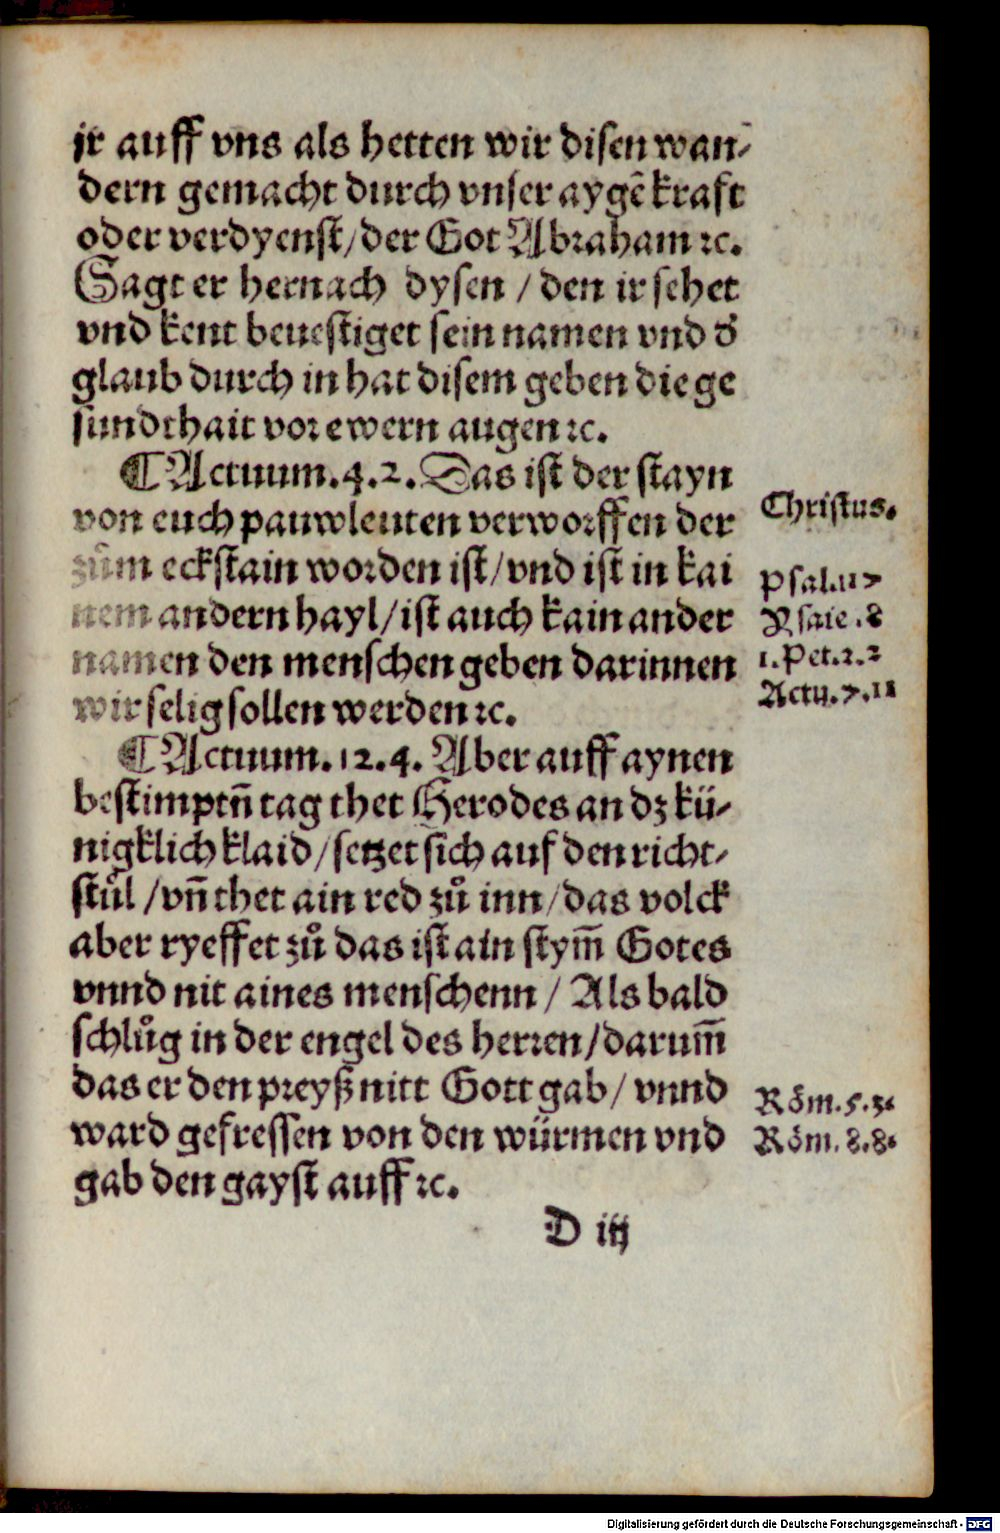 jr auff vns als hetten wir disen wan⸗
dern gemacht durch vnser aygẽ kraft
oder verdyenst/der Got Abraham ⁊c.
Sagt er hernach dysen / den ir sehet
vnd kent beuestiget sein namen vnd d̕
glaub durch in hat disem geben die ge
sundthait vor ewern augen ⁊c.
¶Actuum.4.2. Das ist der stayn
von euch pauwleuten verworffen der
zům eckstain worden ist/vnd ist in kai
nem andern hayl/ist auch kain ander
namen den menschen geben darinnen
wir selig sollen werden ⁊c.
¶Actuum.12.4. Aber auff aynen
bestimptñ tag thet Herodes an dz kü⸗
nigklich klaid/setzet sich auf den richt⸗
stůl /vñ thet ain red zů inn/das volck
aber ryeffet zů das ist ain stym̃ Gotes
vnnd nit aines menschenn / Als bald
schlůg in der engel des herren/darum̃
das er den preyß nitt Gott gab/ vnnd
ward gefressen von den würmen vnd
gab den gayst auff ⁊c.
D iij
Christus.
Psal.117
Ysaie.8
1.Pet.2.2
Actu.7.11
Röm.5.3.
Röm.8.8.
Digitalisierung gefördert durch die Deutsche Forschungsgemeinschaft - DFG